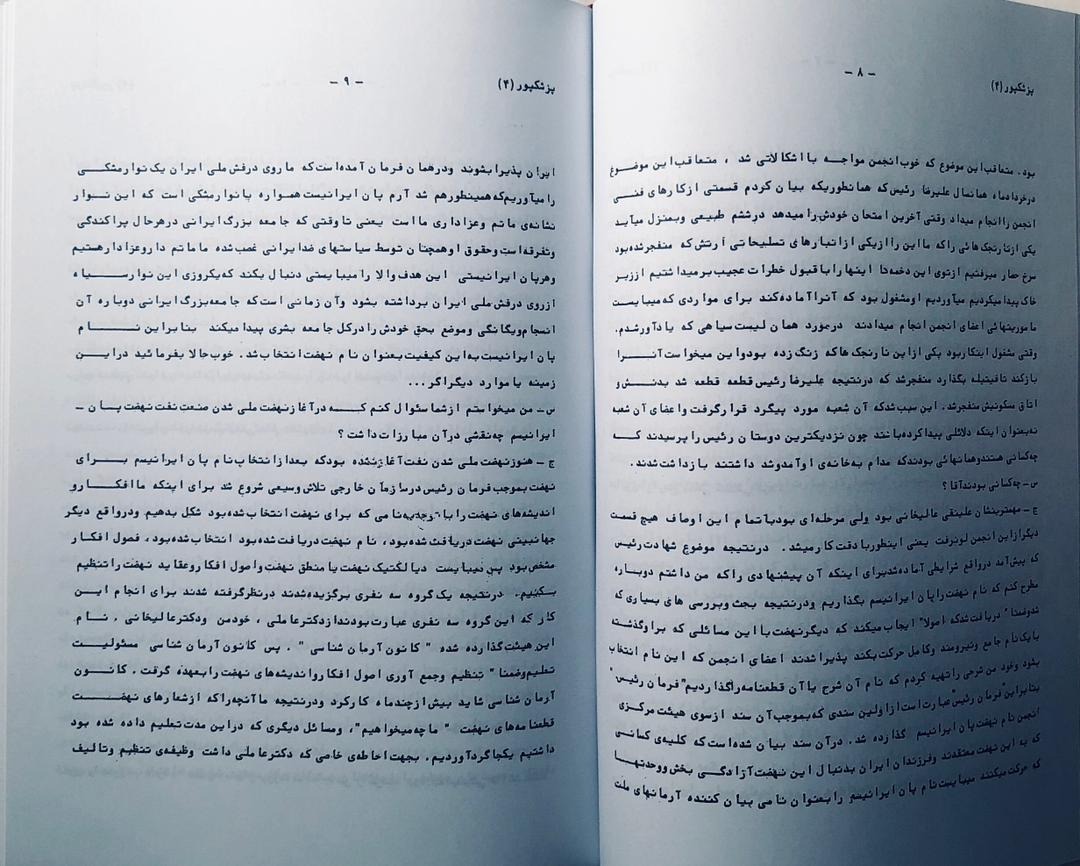 پزشکپور (۴)
- ۸ -
بود. متعاقب این موضوع که خوب انجمن مواجه با اشکالاتی شد ، متعاقب این موضوع
درخردادماه همانسال علیرضا رئیس که همانطوریکه بیان کردم قسمتی از کارهای فنی
انجمن را انجام میداد وقتی آخرین امتحان خودش را میدهد درششم طبیعی وبمنزل میآید
یکی از نارنجک هائی را که ما این را از یکی از انبارهای تسلیحاتی ارتش که منفجر شده بود
سرخ حصار میرفتیم از توی این دخمه‌ها اینها را با قبول خطرات عجیب برمیداشتیم از زیر
خاک پیدا میکردیم میآوردیم او مشغول بود که آنرا آماده کند برای مواردی که میبایست
ماموریتهائی اعضای انجمن انجام میدادند درمورد همان لیست سیاهی که یادآورشدم.
وقتی مشغول اینکاربود یکی از این نارنجک هاکه زنگ زده بود و این میخواست آنرا
بازکند تا فیتیله بگذارد منفجرشد که درنتیجه علیرضا رئیس قطعه قطعه شد بدنش و
اتاق سکونیش منفجرشد. این سبب شد که آن شعبه مورد پیگرد قرارگرفت و اعضای آن شعبه
نه بعنوان اینکه دلائلی پیدا کرده باشند چون نزدیکترین دوستان رئیس را پرسیدند که
چه کسانی هستند وهمانهائی بودند که مدام به خانه‌ی او آمدوشد داشتند بازداشت شدند.
س- چه کسانی بودند آقا ؟
ج- مهمترینشان علینقی عالیخانی بود ولی مرحله‌ای بود با تمام این اوصاف هیچ قسمت
دیگر از این انجمن لو نرفت یعنی اینطور با دقت کار میشد. درنتیجه موضوع شهادت رئیس
که پیش آمد درواقع شرایطی آماده شد برای اینکه آن پیشنهادی را که من داشتم دوباره
مطرح کنم که نام نهضت را پان ایرانیسم بگذاریم ودرنتیجه بحث وبررسی های بسیاری که
شد وضمنا" دریافت شد که اصولا" ایجاب میکند که دیگر نهضت با این مسائلی که براو گذشته
با یک نام جامع ونیرومند وکامل حرکت بکند پذیرا شدند اعضای انجمن که این نام انتخاب
بشود وخود من شرحی را تهیه کردم که نام آن شرح یا آن قطعنامه را گذاردیم"فرمان رئیس"
بنابراین"فرمان رئیس"عبارت است از اولین سندی که بموجب آن سند از سوی هیئت مرکزی
انجمن نام نهضت پان ایرانیسم گذارده شد. درآن سند بیان شده است که کلیه‌ی کسانی
که به این نهضت معتقدند وفرزندان ایران بدنبال این نهضت آزادگی بخش ووحدتها
که حرکت میکنند میبایست نام پان ایرانیسم را بعنوان نامی بیان کننده آرمانهای ملت
پزشکپور (۴)
- ۹ -
ایران پذیرا بشوند ودرهمان فرمان آمده است که ما روی درفش ملی ایران یک نوار مشکی
را میآوریم که همینطورهم شد آرم پان ایرانیست همواره با نوار مشکی است که این نوار
نشانه‌ی ماتم وعزاداری ما است یعنی تا وقتی که جامعه بزرگ ایرانی درهرحال پراکندگی
وتفرقه است وحقوق او همچنان توسط سیاستهای ضد ایرانی غصب شده ما ماتم دار وعزادار هستیم
وهر پان ایرانیستی این هدف والا را میبایستی دنبال بکند که یکروزی این نوار سیاه
از روی درفش ملی ایران برداشته بشود وآن زمانی است که جامعه بزرگ ایرانی دوباره آن
انسجام ویگانگی وموضع بحق خودش را درکل جامعه بشری پیدا میکند بنابراین نام
پان ایرانیست به این کیفیت بعنوان نام نهضت انتخاب شد. خوب حالا بفرمائید دراین
زمینه یا موارد دیگر اگر...
س- من میخواستم از شما سئوال کنم که درآغاز نهضت ملی شدن صنعت نفت نهضت پان-
ایرانیسم چه نقشی درآن مبارزات داشت ؟
ج- هنوز نهضت ملی شدن نفت آغاز نشده بود که بعد از انتخاب نام پان ایرانیسم برای
نهضت بموجب فرمان رئیس درسازمان خارجی تلاش وسیعی شروع شد برای اینکه ما افکار و
اندیشه‌های نهضت را با توجه به نامی که برای نهضت انتخاب شده بود شکل بدهیم ودرواقع دیگر
جهانبینی نهضت دریافت شده بود، نام نهضت دریافت شده بود انتخاب شده بود، فصول افکار
مشخص بود پس میبایست دیالکتیک نهضت یا منطق نهضت واصول افکار وعقاید نهضت را تنظیم
بکنیم. درنتیجه یک گروه سه نفری برگزیده شدند درنظر گرفته شدند برای انجام این
کار که این گروه سه نفری عبارت بودند از دکتر عاملی ، خود من ودکتر عالیخانی. نام
این هیئت گذارده شده "کانون آرمان شناسی". پس کانون آرمان شناسی مسئولیت
تعلیم وضمنا" تنظیم وجمع آوری اصول افکار واندیشه‌های نهضت را بعهده گرفت. کانون
آرمان شناسی شاید بیش از چند ماه کار کرد ودرنتیجه ما آنچه را که از شعارهای نهضت
قطعنامه‌های نهضت "ما چه میخواهیم"، ومسائل دیگری که دراین مدت تعلیم داده شده بود
داشتیم یکجا گردآوردیم. بجهت احاطه‌ی خاصی که دکتر عاملی داشت وظیفه‌ی تنظیم وتالیف